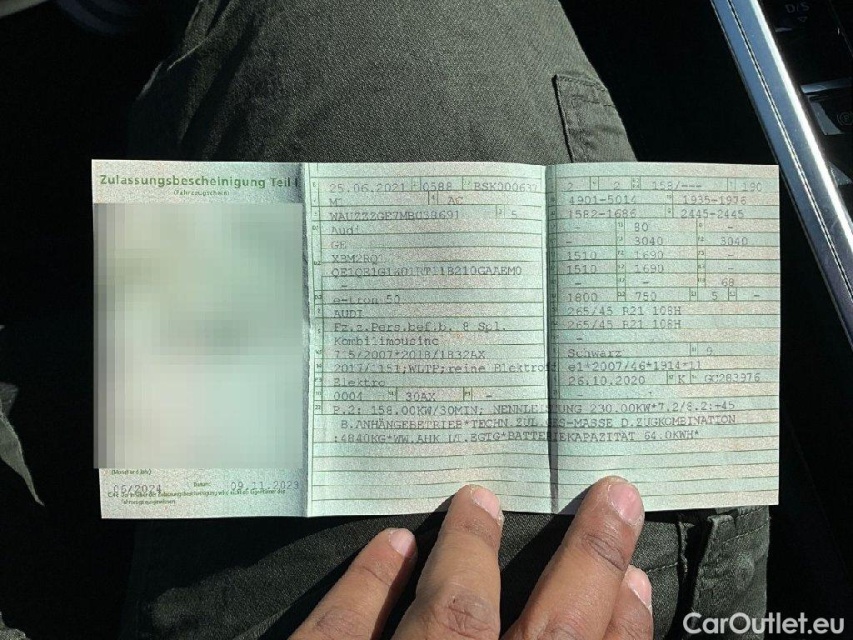 Zulassungsbescheinigung Teil I
(Fahrzeugschein)
25.06.2021 0588 BSK000637
M1 AC
5
Audi
GE
e-tron 50
AUDI
Fz.z.Pers.bef.b. 8 Spl.
Kombilimousine
715/2007*2018/1832AX
WLTP;reine Elektrof
Elektro
0004 30AX
2 2 158/--- 190
4901-5014 1935-1976
1582-1686 2445-2445
- 80 -
- 3040 3040
1510 1690 -
1510 1690 -
- - 68
1800 750 5 -
265/45 R21 108H
265/45 R21 108H
Schwarz 9
e1*2007/46*1914*11
26.10.2020 K GC283976
P.2: 158.00KW/30MIN; NENNLEISTUNG 230.00KW*7.2/8.2:+45
B.ANHÄNGEBETRIEB*TECHN.ZUL.GES-MASSE D.ZUGKOMBINATION
:4840KG*WW.AHK LT.EGTG*BATTERIEKAPAZITÄT 64.0KWH*
06/2024 Datum: 09.11.2023
CarOutlet.eu